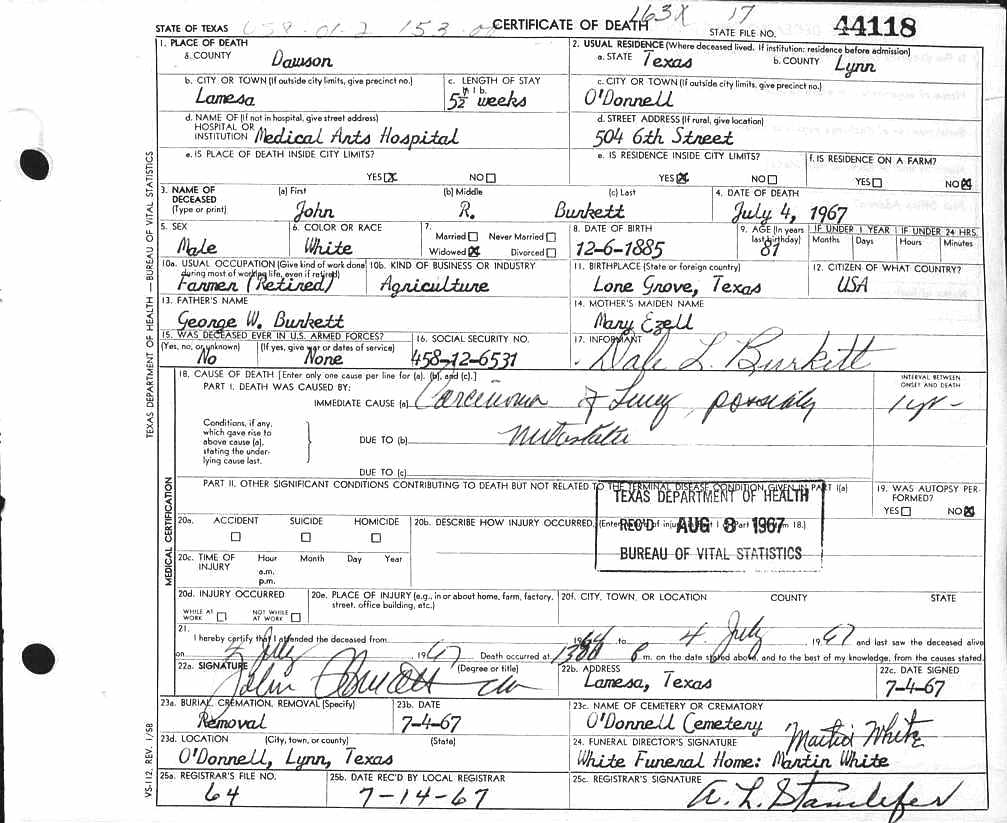 STATE OF TEXAS
CERTIFICATE OF DEATH
163X 17
STATE FILE NO. 44118
1. PLACE OF DEATH
a. COUNTY Dawson
2. USUAL RESIDENCE (Where deceased lived. If institution: residence before admission)
a. STATE Texas b. COUNTY Lynn
b. CITY OR TOWN (If outside city limits, give precinct no.) Lamesa
c. LENGTH OF STAY in 1 b. 5½ weeks
c. CITY OR TOWN (If outside city limits, give precinct no.) O'Donnell
d. NAME OF (If not in hospital, give street address) HOSPITAL OR INSTITUTION Medical Arts Hospital
d. STREET ADDRESS (If rural, give location) 504 6th Street
e. IS PLACE OF DEATH INSIDE CITY LIMITS? YES ☒ NO ☐
e. IS RESIDENCE INSIDE CITY LIMITS? YES ☒ NO ☐
f. IS RESIDENCE ON A FARM? YES ☐ NO ☒
3. NAME OF DECEASED (Type or print) (a) First John (b) Middle R. (c) Last Burkett
4. DATE OF DEATH July 4, 1967
5. SEX Male
6. COLOR OR RACE White
7. Married ☐ Never Married ☐ Widowed ☒ Divorced ☐
8. DATE OF BIRTH 12-6-1885
9. AGE (In years last birthday) 81
IF UNDER 1 YEAR Months Days
IF UNDER 24 HRS. Hours Minutes
10a. USUAL OCCUPATION (Give kind of work done during most of working life, even if retired) Farmer (Retired)
10b. KIND OF BUSINESS OR INDUSTRY Agriculture
11. BIRTHPLACE (State or foreign country) Lone Grove, Texas
12. CITIZEN OF WHAT COUNTRY? USA
13. FATHER'S NAME George W. Burkett
14. MOTHER'S MAIDEN NAME Mary Ezell
15. WAS DECEASED EVER IN U.S. ARMED FORCES? (Yes, no, or unknown) No (If yes, give war or dates of service) None
16. SOCIAL SECURITY NO. 458-12-6531
17. INFORMANT Dale L. Burkett
18. CAUSE OF DEATH [Enter only one cause per line for (a), (b), and (c).]
PART I. DEATH WAS CAUSED BY:
IMMEDIATE CAUSE (a) Carcinoma of Lung, possibly
INTERVAL BETWEEN ONSET AND DEATH 1 yr-
Conditions, if any, which gave rise to above cause (a), stating the underlying cause last.
DUE TO (b) metastatic
DUE TO (c)
PART II. OTHER SIGNIFICANT CONDITIONS CONTRIBUTING TO DEATH BUT NOT RELATED TO THE TERMINAL DISEASE CONDITION GIVEN IN PART I(a)
19. WAS AUTOPSY PERFORMED? YES ☐ NO ☒
TEXAS DEPARTMENT OF HEALTH
REC'D AUG 3 1967
BUREAU OF VITAL STATISTICS
20a. ACCIDENT ☐ SUICIDE ☐ HOMICIDE ☐
20b. DESCRIBE HOW INJURY OCCURRED.
20c. TIME OF INJURY Hour a.m. p.m. Month Day Year
20d. INJURY OCCURRED WHILE AT WORK ☐ NOT WHILE AT WORK ☐
20e. PLACE OF INJURY (e.g., in or about home, farm, factory, street, office building, etc.)
20f. CITY, TOWN, OR LOCATION COUNTY STATE
21. I hereby certify that I attended the deceased from 1964 to 4 July 1967 and last saw the deceased alive
on 4 July 1967 Death occurred at 1300 P m. on the date stated above, and to the best of my knowledge, from the causes stated.
22a. SIGNATURE (Degree or title)
22b. ADDRESS Lamesa, Texas
22c. DATE SIGNED 7-4-67
23a. BURIAL, CREMATION, REMOVAL (Specify) Removal
23b. DATE 7-4-67
23c. NAME OF CEMETERY OR CREMATORY O'Donnell Cemetery
23d. LOCATION (City, town, or county) (State) O'Donnell, Lynn, Texas
24. FUNERAL DIRECTOR'S SIGNATURE Martin White
White Funeral Home: Martin White
25a. REGISTRAR'S FILE NO. 64
25b. DATE REC'D BY LOCAL REGISTRAR 7-14-67
25c. REGISTRAR'S SIGNATURE A. L. Standefer
TEXAS DEPARTMENT OF HEALTH — BUREAU OF VITAL STATISTICS
MEDICAL CERTIFICATION
VS-112, REV. 1/58